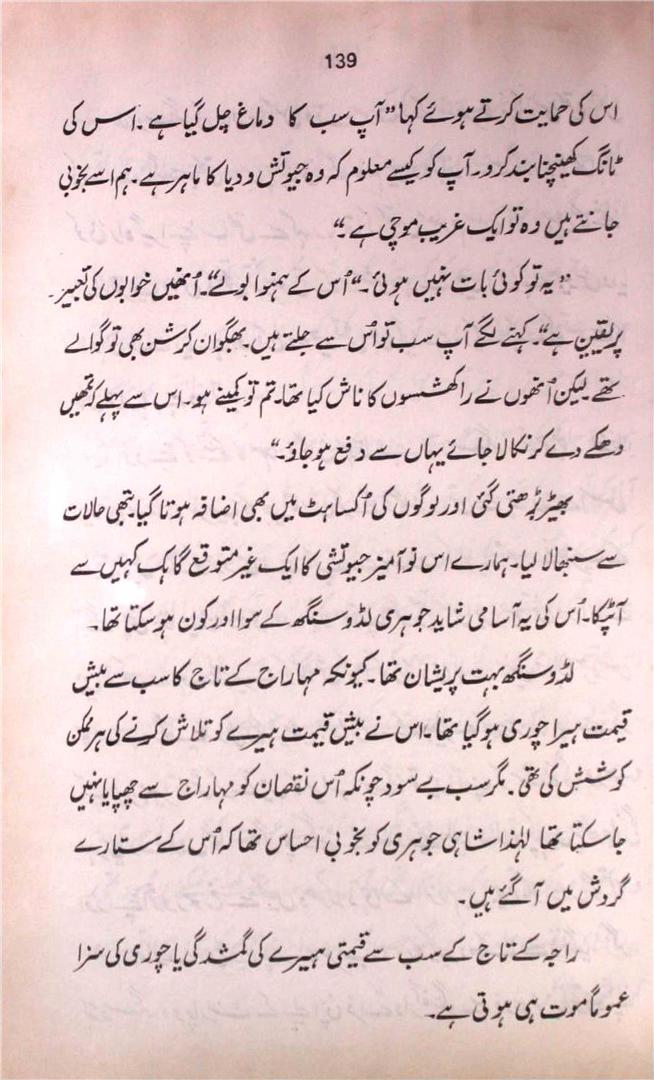 139
اس کی حمایت کرتے ہوئے کہا ”آپ سب کا دماغ چل گیا ہے۔ اس کی
ٹانگ کھینچنا بند کرو۔ آپ کو کیسے معلوم کہ وہ جیوتش ودیا کا ماہر ہے۔ ہم اسے بخوبی
جانتے ہیں وہ تو ایک غریب موچی ہے۔“
”یہ تو کوئی بات نہیں ہوئی۔“ اُس کے ہمنوا بولے”۔ اُنھیں خوابوں کی تعبیر
پر یقین ہے“۔ کہنے لگے آپ سب تو اُس سے جلتے ہیں۔ بھگوان کرشن بھی تو گوالے
تھے۔ لیکن اُنھوں نے راکھشسوں کا ناش کیا تھا۔ تم تو کمینے ہو۔ اس سے پہلے کہ تمھیں
دھکے دے کر نکالا جائے یہاں سے دفع ہو جاؤ۔“
بھیڑ بڑھتی گئی اور لوگوں کی اُکساہٹ میں بھی اضافہ ہوتا گیا۔ تبھی حالات
سے سنبھالا لیا۔ ہمارے اس نو آمیز جیوتشی کا ایک غیر متوقع گاہک کہیں سے
آٹپکا۔ اُس کی یہ آسامی شاید جوہری لڈو سنگھ کے سوا اور کون ہو سکتا تھا۔
لڈو سنگھ بہت پریشان تھا۔ کیونکہ مہاراج کے تاج کا سب سے بیش
قیمت ہیرا چوری ہو گیا تھا۔ اس نے بیش قیمت ہیرے کو تلاش کرنے کی ہر ممکن
کوشش کی تھی۔ مگر سب بے سود چونکہ اُس نقصان کو مہاراج سے چھپایا نہیں
جاسکتا تھا لہٰذا شاہی جوہری کو بخوبی احساس تھا کہ اُس کے ستارے
گردش میں آگئے ہیں۔
راجہ کے تاج کے سب سے قیمتی ہیرے کی گمشدگی یا چوری کی سزا
عموماً موت ہی ہوتی ہے۔